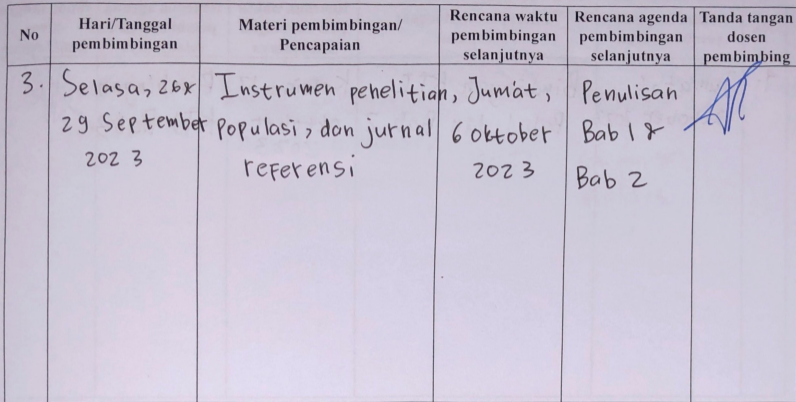 No
Hari/Tanggal
pembimbingan
Materi pembimbingan/
Pencapaian
Rencana waktu
pembimbingan
selanjutnya
Rencana agenda
pembimbingan
selanjutnya
Tanda tangan
dosen
pembimbing
3.
Selasa, 26 &
29 September
2023
Instrumen penelitian,
populasi, dan jurnal
referensi
Jum'at,
6 Oktober
2023
Penulisan
Bab 1 &
Bab 2